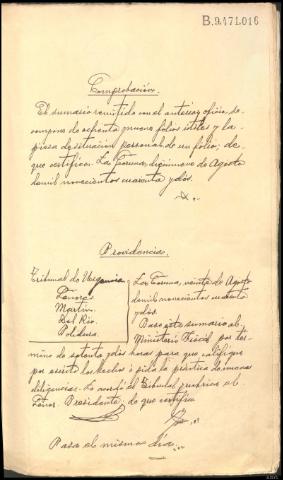 B.9.471.016
Comprobación.
El sumario remitido con el anterior oficio, se
compone de ochenta nueve folios útiles y la
pieza de situación personal de un folio; de
que certifico. La Coruña, diecinueve de Agosto
de mil novecientos cuarenta y dos.
Providencia.
Tribunal de Urgencia
Martin
Del Rio
La Coruña, veinte de Agosto
de mil novecientos cuarenta
y dos.
Pase este sumario al
Ministerio Fiscal por tér-
mino de setenta y dos horas para que califique
por escrito los hechos o pida la práctica de nuevas
diligencias. Lo acordó el Tribunal y rubrica el
Señor Presidente, de que certifico.
Pasa el mismo día.